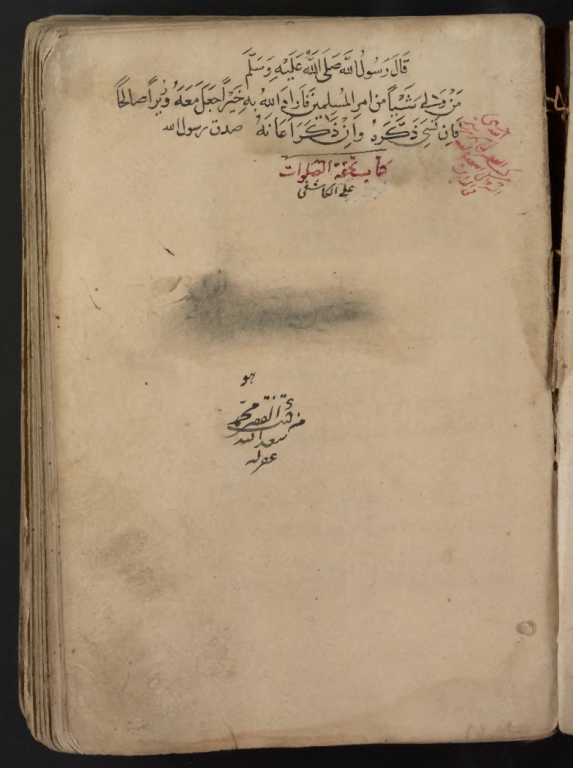 قَالَ رَسُولُ اللَّه صَلَى اللَّهُ عَلَيْهِ وَسَلَّمَ
مَنْ وَلِىَ شَيْئاً من امر المسلمين فَاَرادَ اللهُ بهِ خَيْراً جعَلَ مَعَهُ وَزيراً صالحًا
فَاِن نَسِىَ ذَكَّرَهُ وَاِنْ ذَكَرَ اَعَانَهُ صدق رسول الله
كتاب تحفة الصلوات
على الكاشفى
هو
من كتب الفقير محمد
سعد الله
غفر له